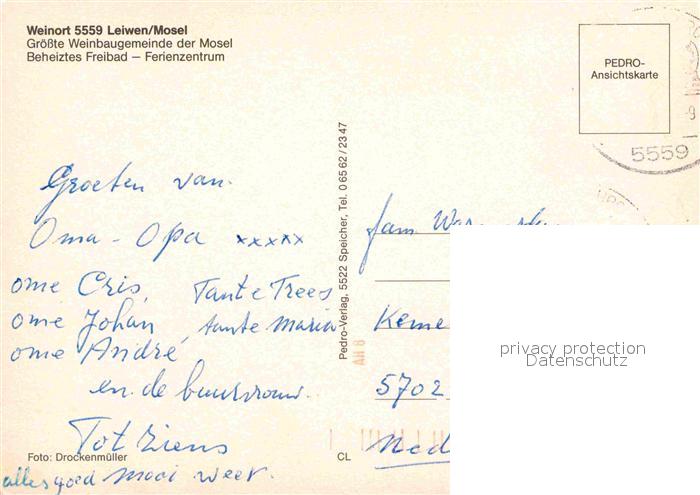 Weinort 5559 Leiwen/Mosel
Größte Weinbaugemeinde der Mosel
Beheiztes Freibad – Ferienzentrum
PEDRO-
Ansichtskarte
5559
Groeten van.
Oma - Opa xxxxx
ome Cris, Tante Trees
ome Johan, tante Maria
ome André,
en de buurvrouw.
Tot Ziens
alles goed mooi weer.
Foto: Drockenmüller
CL
Pedro-Verlag, 5522 Speicher, Tel. 0 65 62 / 23 47
fam.
Keme
5702
Ned
privacy protection
Datenschutz